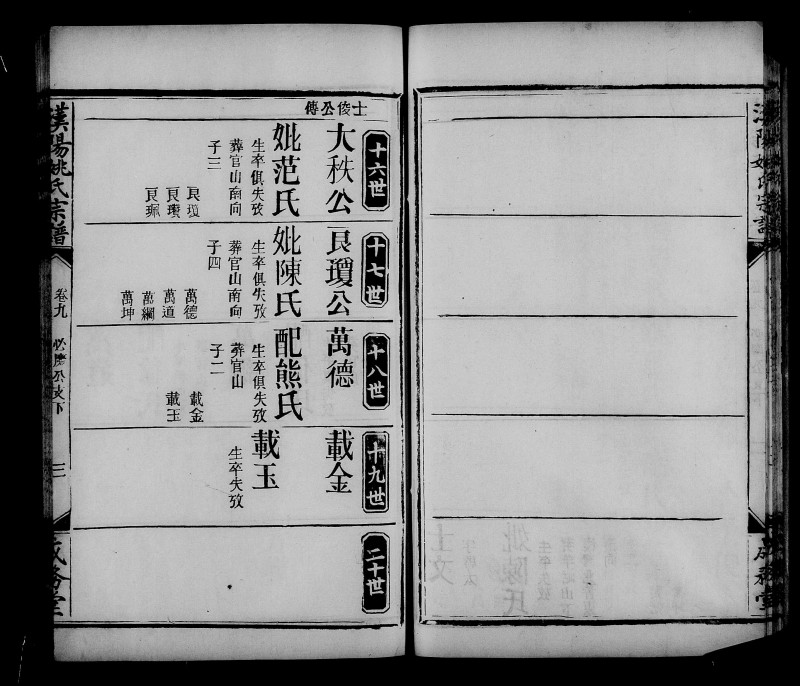 士俊公傳
十六世
大秩公
妣范氏
生卒俱失攷
葬官山南向
子三
良瓊
良瓚
良珮
十七世
良瓊公
妣陳氏
生卒俱失攷
葬官山南向
子四
萬德
萬道
萬綱
萬坤
十八世
萬德
配熊氏
生卒俱失攷
葬官山
子二
載金
載玉
十九世
載金
載玉
生卒失攷
二十世
漢陽姚氏宗譜
卷九
公支下
三
成務堂